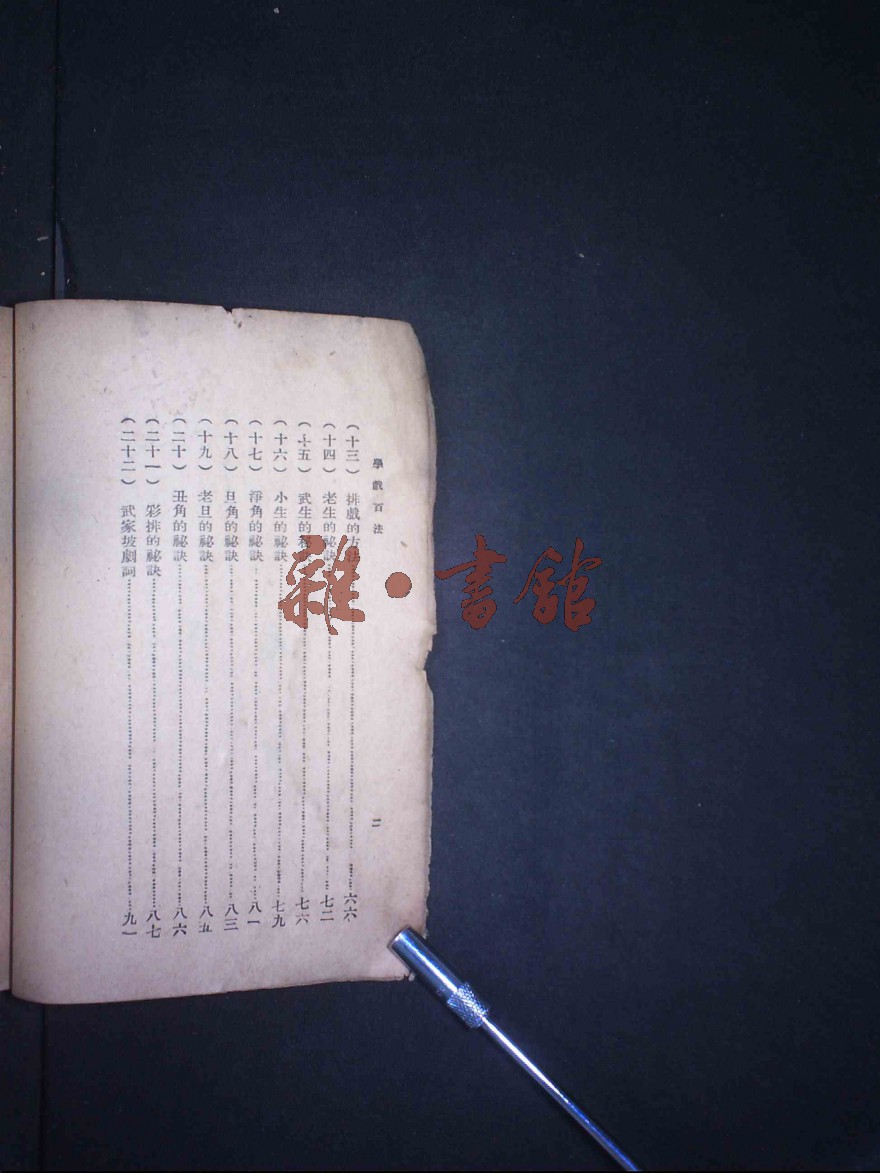 學戲百法
二
(十三) 排戲的方法 六六
(十四) 老生的秘訣 七二
(十五) 武生的秘訣 七六
(十六) 小生的秘訣 七九
(十七) 淨角的秘訣 八一
(十八) 旦角的秘訣 八三
(十九) 老旦的秘訣 八五
(二十) 丑角的秘訣 八六
(二十一) 彩排的秘訣 八七
(二十二) 武家坡劇詞 九一
雜·書館